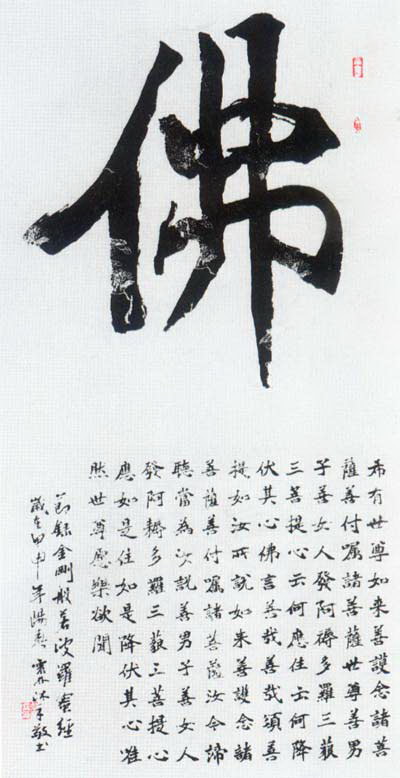 佛
希有世尊如来善護念諸菩
薩善付嘱諸菩薩世尊善男
子善女人發阿耨多羅三藐
三菩提心云何應住云何降
伏其心佛言善哉善哉須菩
提如汝所說如来善護念諸
菩薩善付嘱諸菩薩汝今諦
聽當為汝說善男子善女人
發阿耨多羅三藐三菩提心
應如是住如是降伏其心唯
然世尊愿樂欲聞
節錄金剛般若波羅蜜經
歲在甲申年陽春沐手敬书